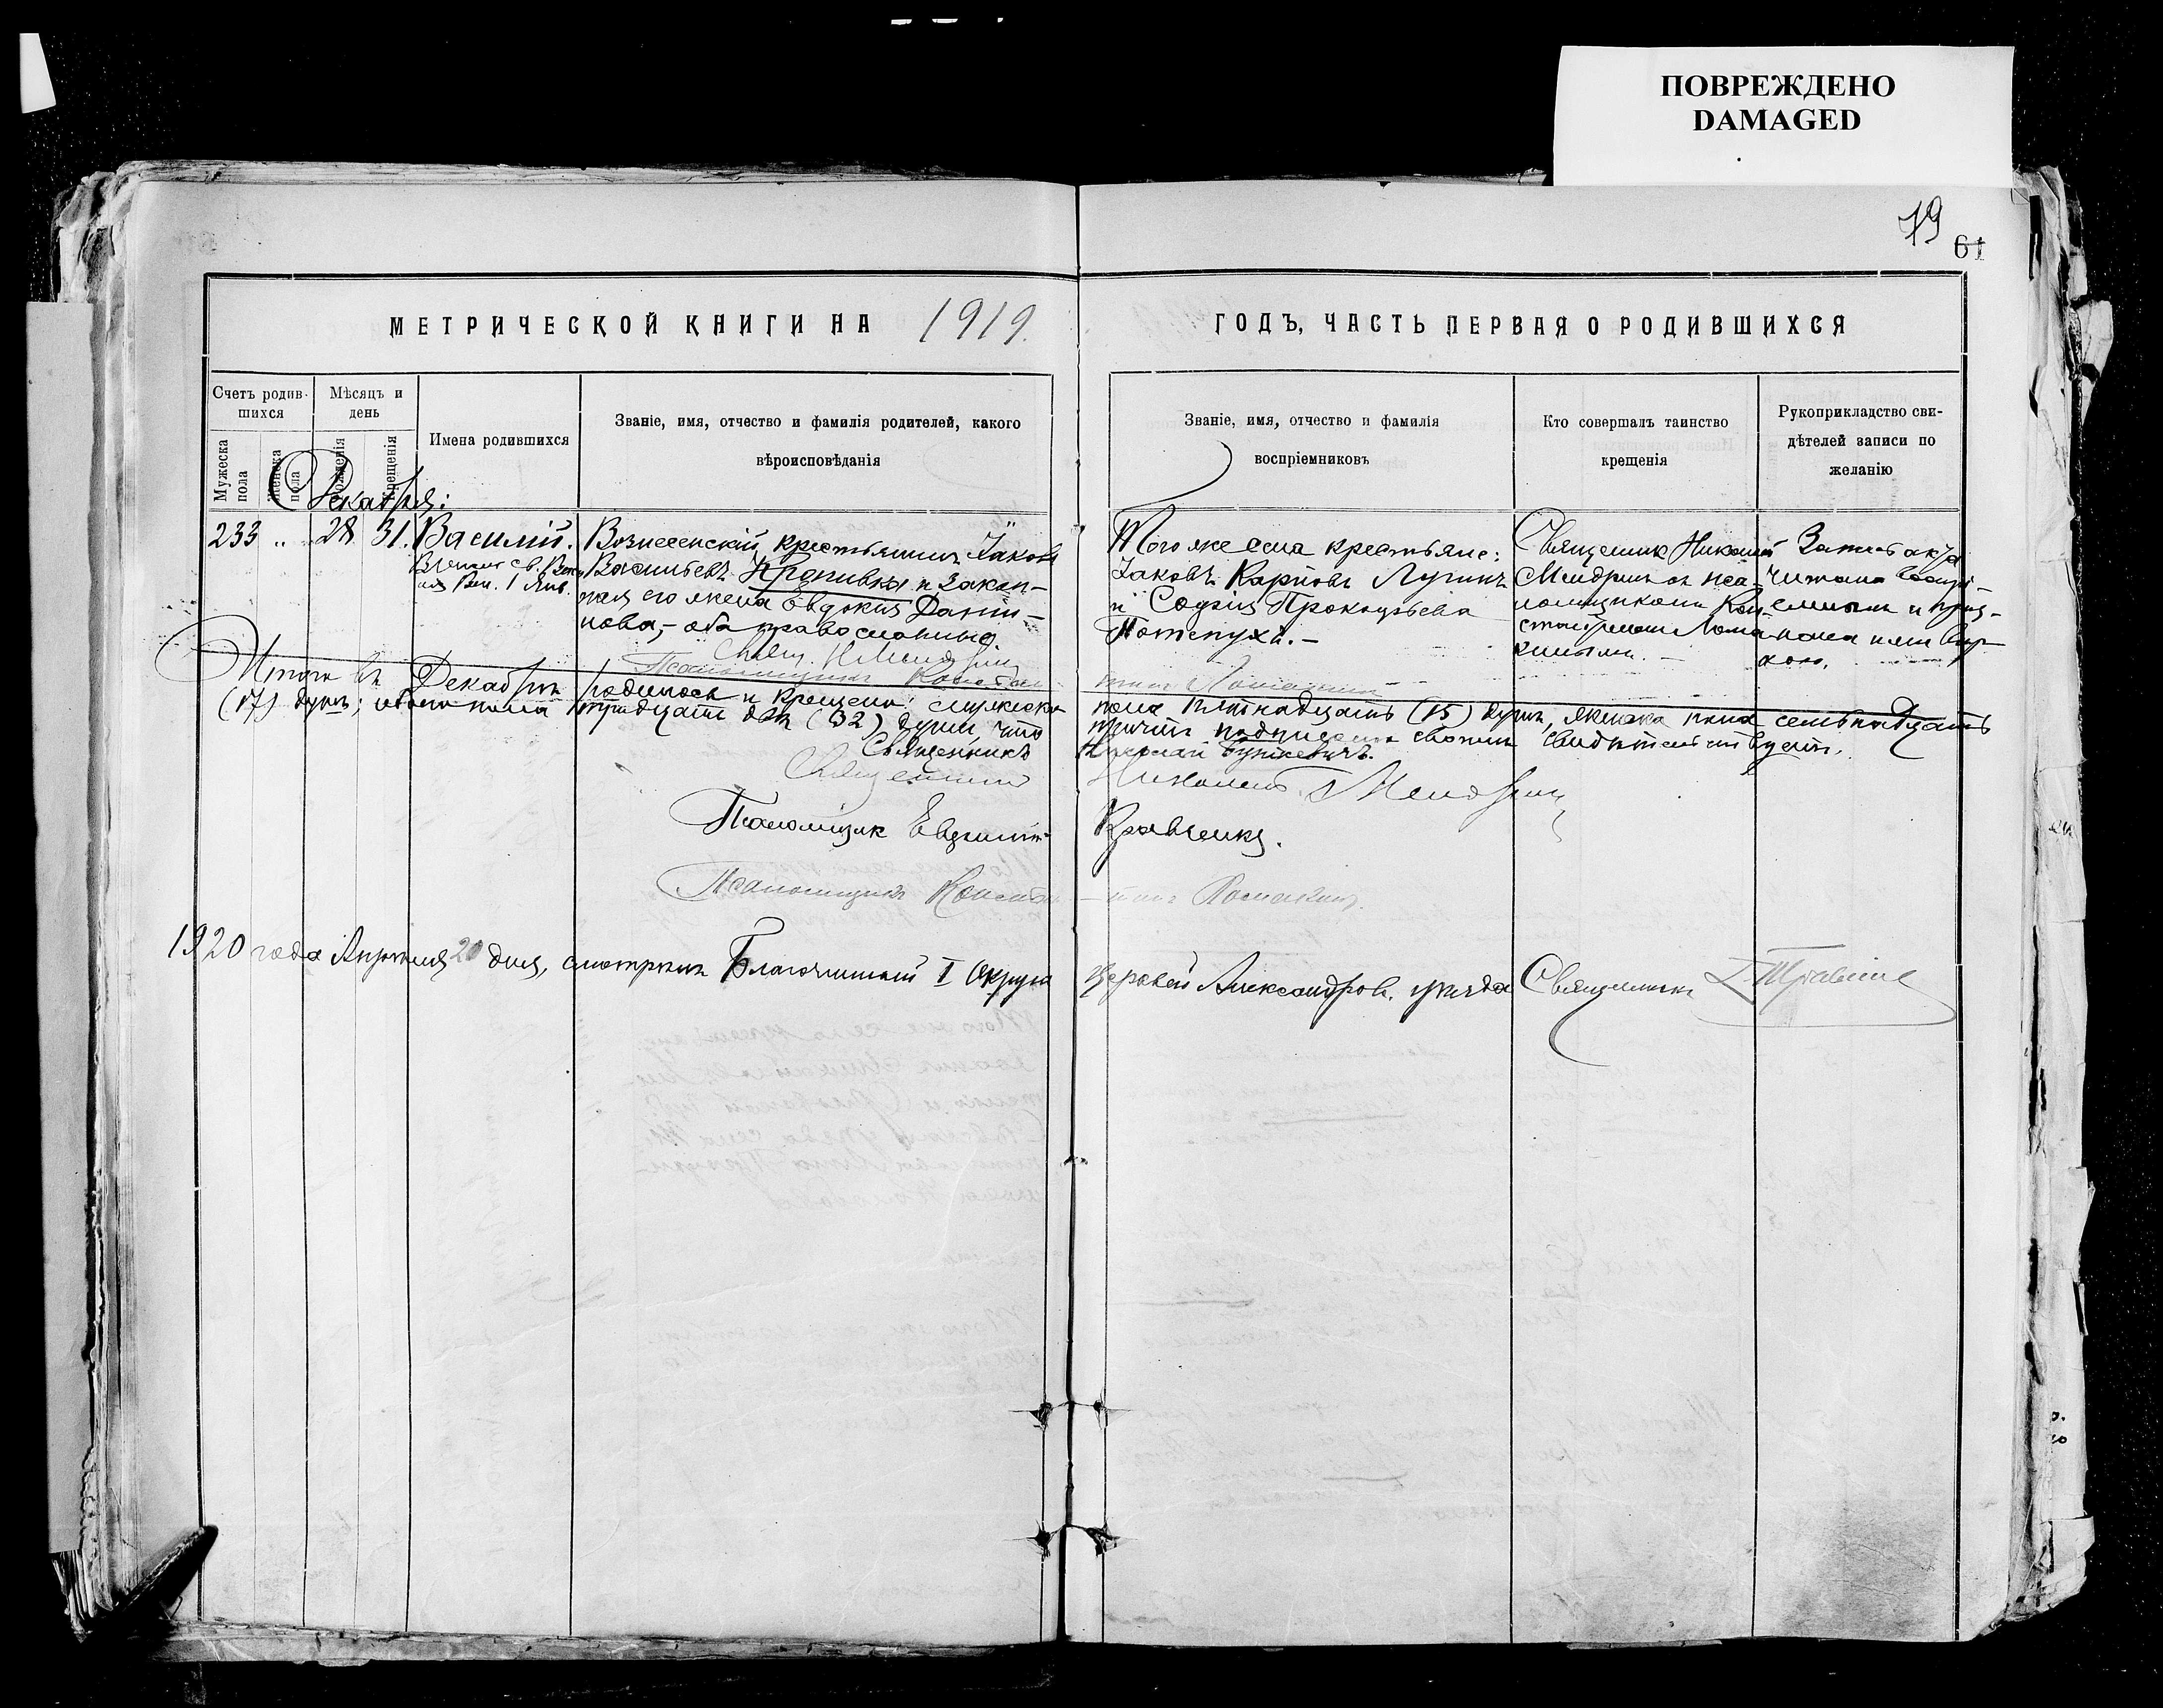 ПОВРЕЖДЕНО
DAMAGED
19
61
МЕТРИЧЕСКОЙ КНИГИ НА 1919.
ГОДЪ, ЧАСТЬ ПЕРВАЯ О РОДИВШИХСЯ
Счетъ родив-
шихся
Мужеска пола
Женска пола
Мѣсяцъ и
день
рожденія
крещенія
Имена родившихся
Званіе, имя, отчество и фамилія родителей, какого
вѣроисповѣданія
Званіе, имя, отчество и фамилія
воспріемниковъ
Кто совершалъ таинство
крещенія
Рукоприкладство сви-
дѣтелей записи по
желанію
Декабрь:
233 „ 28 31. Василій.
св.
Вел. 1 Янв.
Вознесенскій, крестьянинъ Іаковъ
Васильевъ Кропивка и закон-
ная его жена Евдокія Дании-
лова, – оба православные
Свящ. Н. Мендринъ
Псаломщикъ Констан
Того же села крестьяне:
Іаковъ Карповъ Лугинъ
и Софія Прокопьева
Потепуха. –
Священник Николай
Мендринъ съ пса-
ломщикомъ Кон-
стантиномъ Лома-
кинымъ. –
Запись акта
читана воспрі-
емникам и приз-
нана ими вер-
ною.
Итого въ Декабрѣ родилось и крещено: мужеска
пола пятнадцать (15) душъ, женска пола семьнадцать
(17) душъ; обоего пола тридцать двѣ (32) души, что
причтъ подписомъ своимъ свидѣтельствуетъ.
Священникъ
Николай Буткевичъ.
Священникъ
Николай Мендринъ
Псаломщик Евдоким
Кравченко.
Псаломщикъ Констан
–тинъ Ломакинъ.
1920 года Апрѣля 20 дня, смотрѣлъ Благочинный I округа
церквей Александров. уѣзда Священникъ